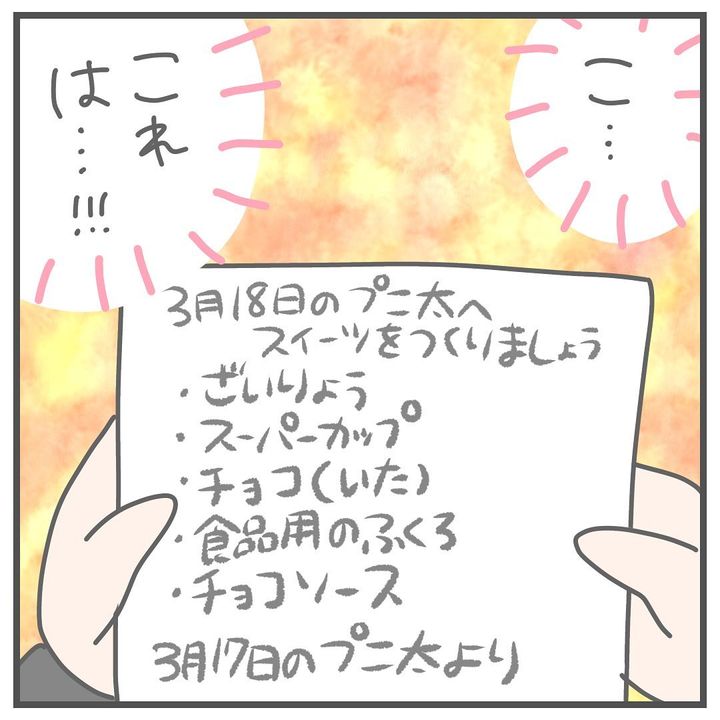 こ…
これ
は…!!!
3月18日のプニ太へ
スイーツをつくりましょう
・ざいりょう
・スーパーカップ
・チョコ(いた)
・食品用のふくろ
・チョコソース
3月17日のプニ太より